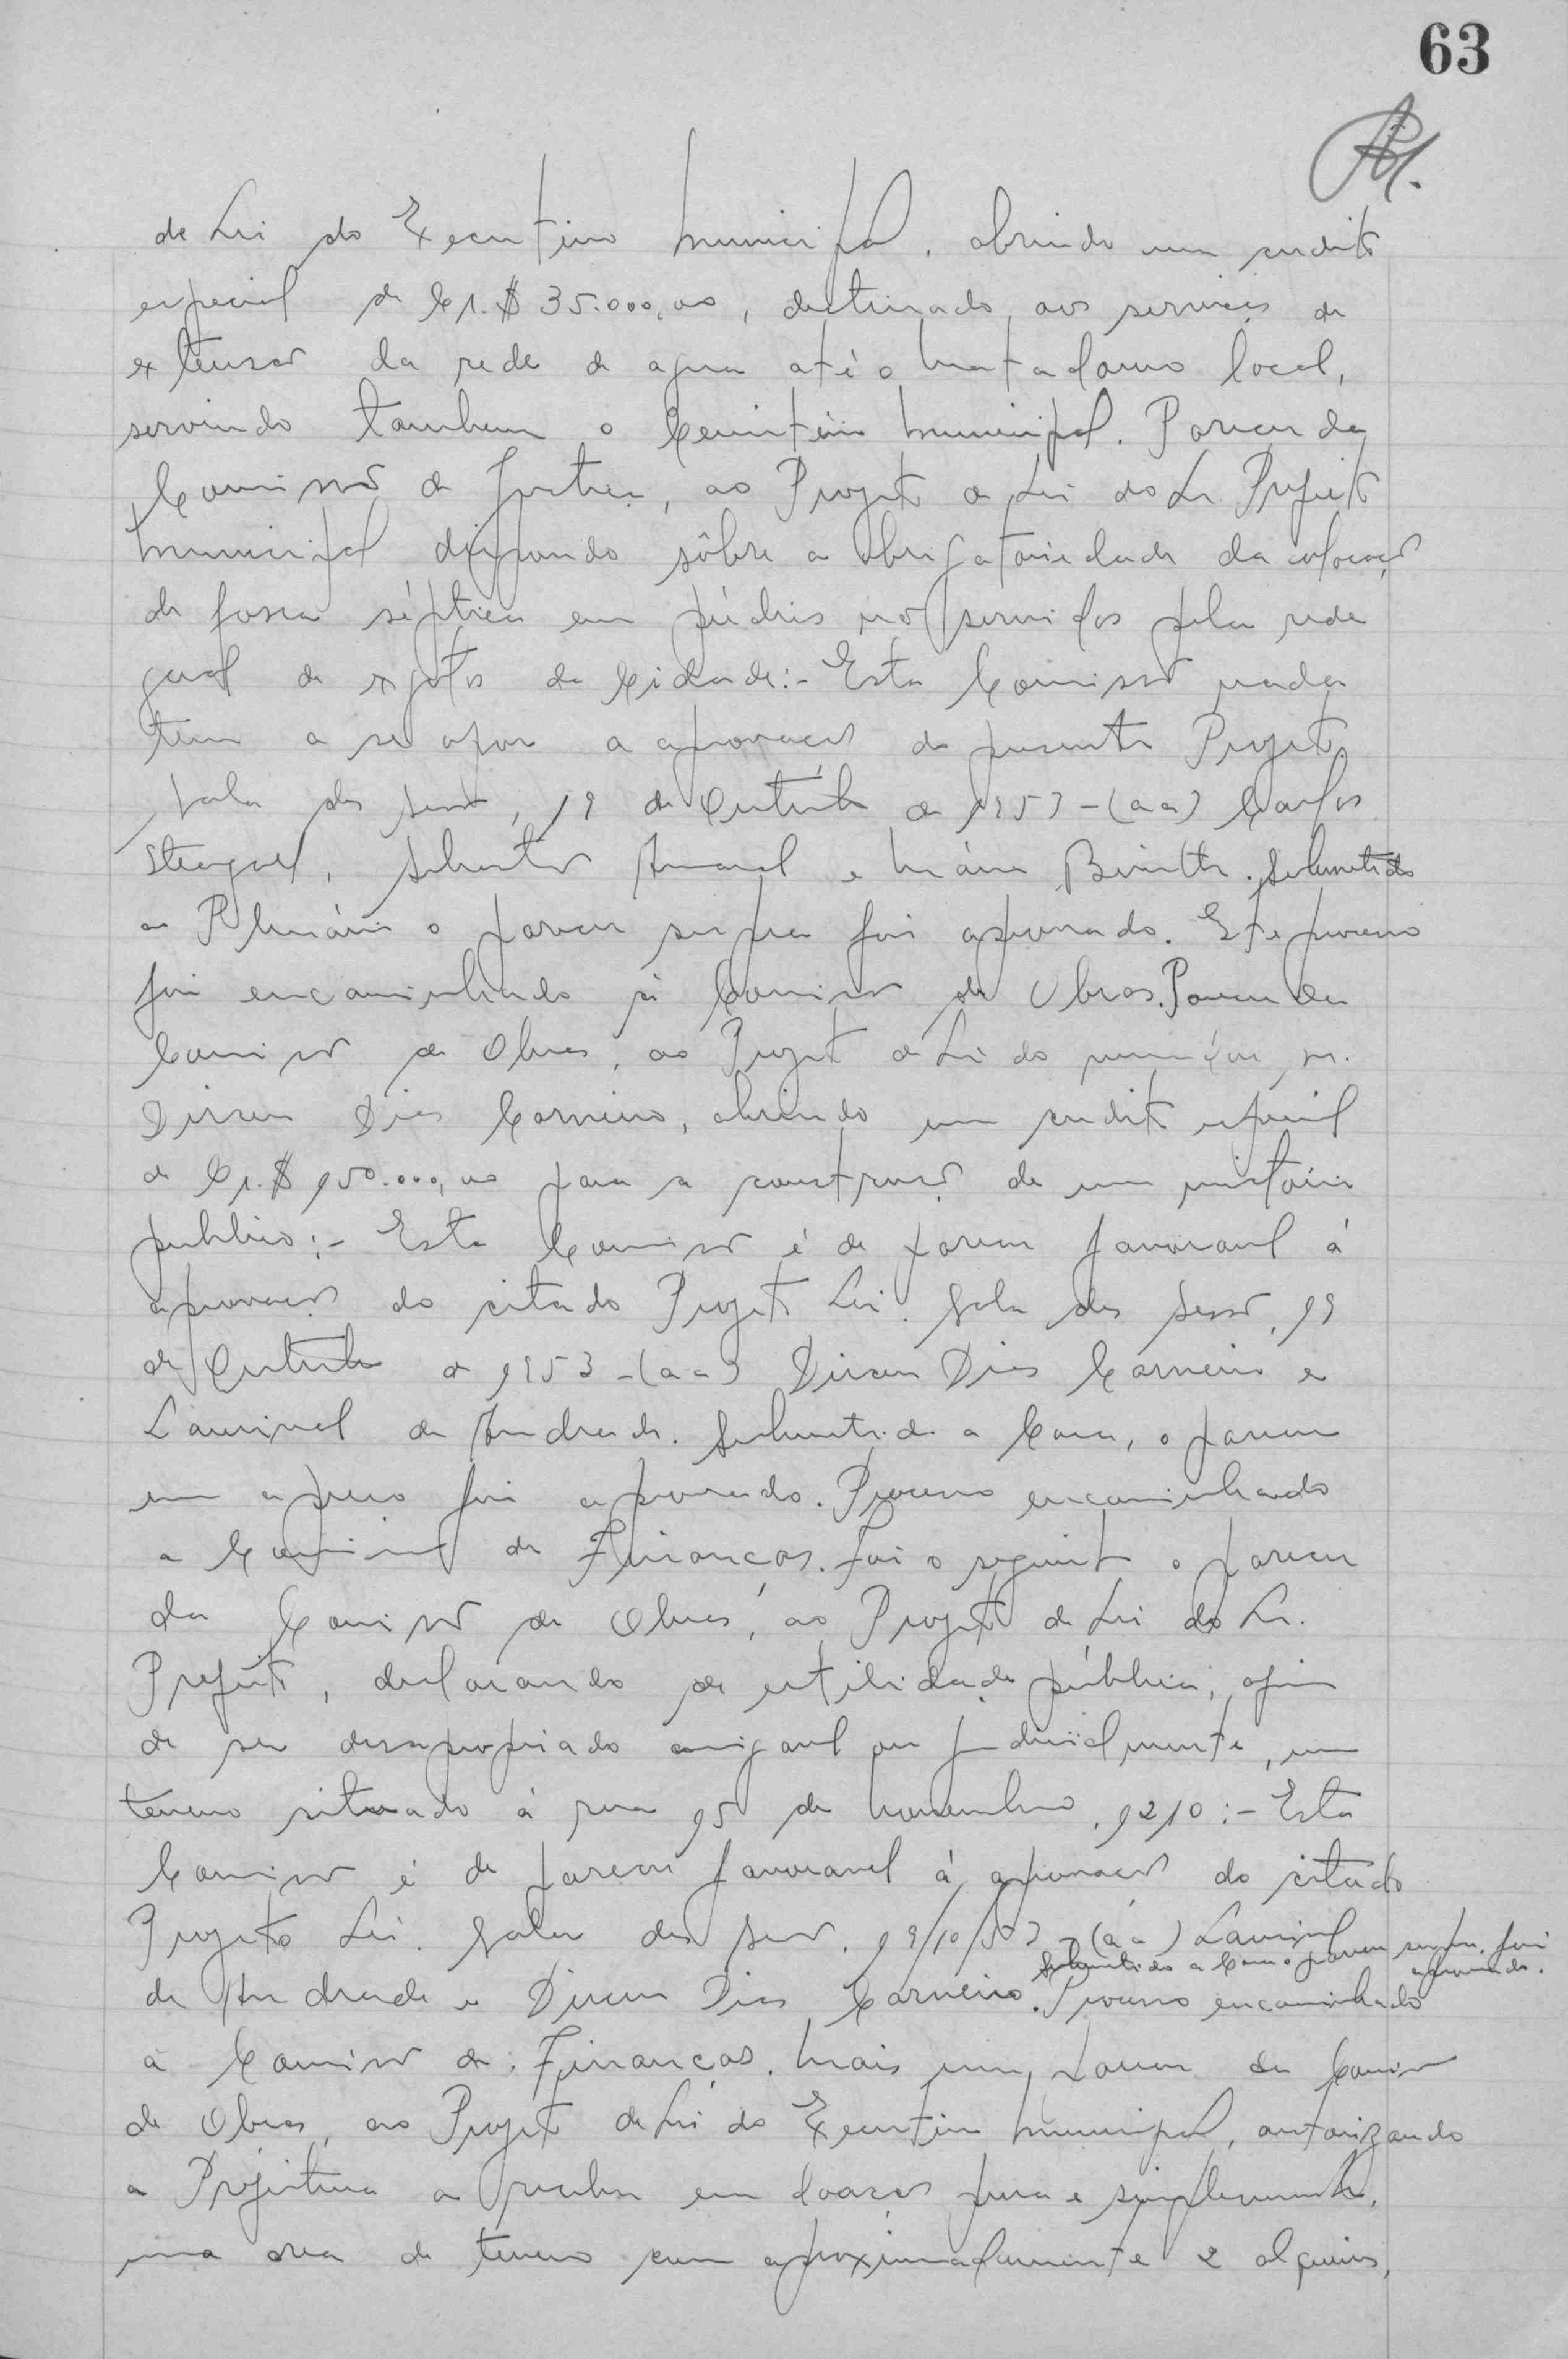 63
de Lei do Executivo Municipal, abrindo um credito
especial de Cr.$ 35.000,00, destinado aos serviços de
extensão da rede de agua até o Matadouro local,
servindo tambem o Cemitério Municipal. Parecer da
Comissão de Justiça, ao Projeto de Lei do Sr. Prefeito
Municipal dispondo sôbre a obrigatoriedade da colocação
de fossa séptica em prédios não servidos pela rede
geral de esgotos da Cidade:- Esta Comissão nada
tem a se opor a aprovação do presente Projeto
Sala das Sessões, 19 de Outubro de 1953 - (aa) Carlos
Stengel, Amaral e Mário Submetido
ao Plenário o parecer supra foi aprovado. Este processo
foi encaminhado á Comissão de Obras. Parecer da
Comissão de Obras, ao Projeto de Lei do vereador, sr.
Dirceu Dias Carneiro, abrindo um credito especial
de Cr.$ 150.000,00 para a construção de um mictório
publico:- Esta Comissão é de parecer favoravel á
aprovação do citado Projeto Lei. Sala das Sessões, 19
de Outubro de 1953 - (aa) Dirceu Dias Carneiro e
Lourival de Andrade. Submetido a Casa, o parecer
em apreço foi aprovado. Processo encaminhado
a Comissão de Finanças. Foi o seguinte o parecer
da Comissão de Obras, ao Projeto de Lei do Sr.
Prefeito, declarando de utilidade pública, afim
de ser desapropriado amigavel ou judicialmente, um
terreno situado á rua 15 de Novembro, 1210:- Esta
Comissão é de parecer favoravel á aprovação do citado
Projeto Lei. Sala das Sessões, 19/10/53 - (aa) Lourival
Submetido a Casa o parecer supra, foi
aprovado.
de Andrade e Dirceu Dias Carneiro. Processo encaminhado
á Comissão de Finanças. Mais um parecer da Comissão
de Obras, ao Projeto de Lei do Executivo Municipal, autorizando
a Prefeitura a receber em doação pura e simplesmente,
uma area de terreno com aproximadamente 2 alqueires,